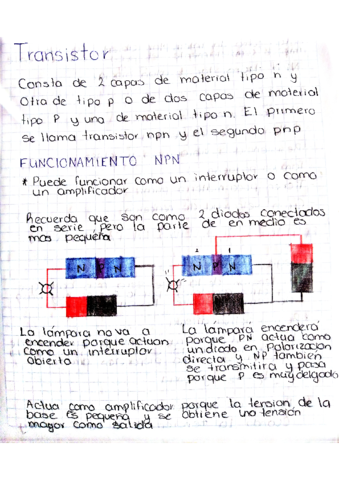 Transistor
Consta de 2 capas de material tipo n y
Otra de tipo p o de dos capas de material
tipo P y uno de material tipo n. El primero
se llama transistor npn y el segundo pnp
FUNCIONAMIENTO NPN
* Puede funcionar como un interruptor o como
un amplificador
Recuerda que son como 2 diodos conectados
en serie pero la parte de en medio es
mas pequeña
N P N
N P N
La lámpara no va a
encender porque actuan
como un interruptor
abierto
La lámpara encenderá
porque PN actua como
un diodo en polarizacion
directa y NP tambien
se transmitira y pasa
porque P es muy delgado
Actua como amplificador porque la tension de la
base es pequeña y se obtiene una tension
mayor como salida